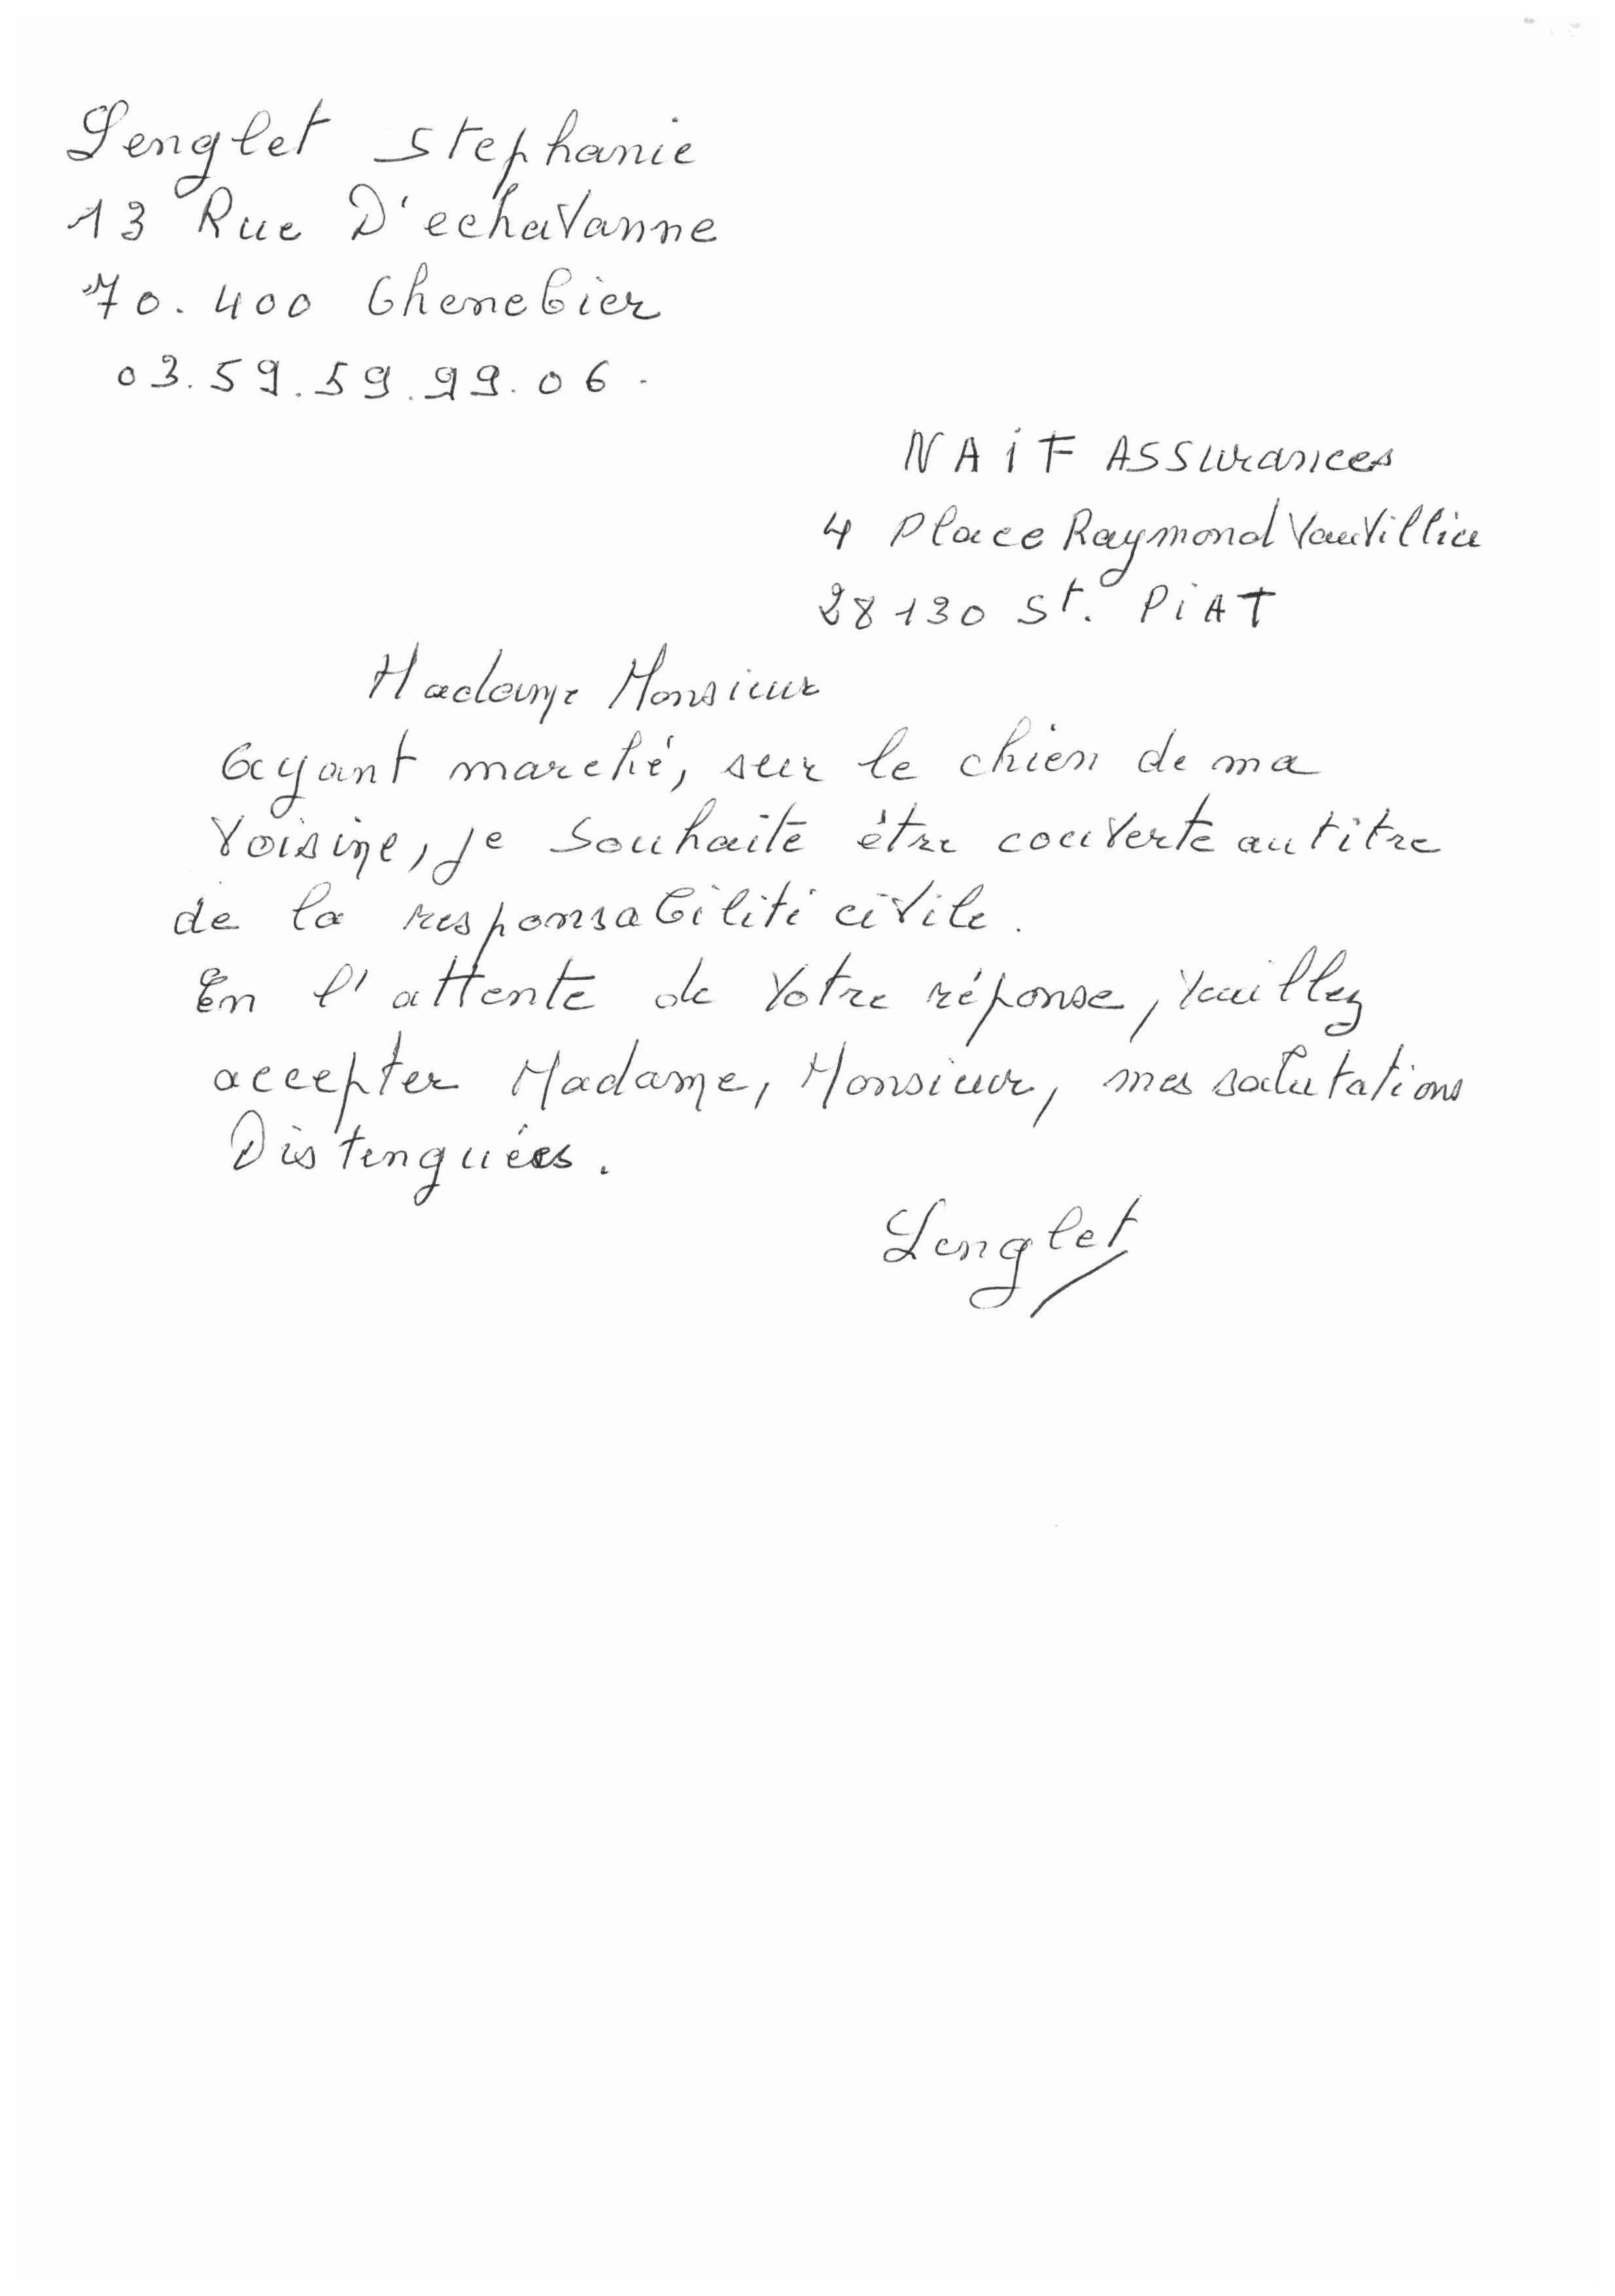 Lenglet Stephanie
13 Rue D'echaVanne
70.400 Chenebier
03.59.59.99.06.
NAiF ASSurances
4 Place Raymond VauVillier
28130 St. PiAT
Madame Monsieur
Ayant marché, sur le chien de ma
Voisine, je Souhaite être couVerte au titre
de la responsabilité ciVile.
En l'attente de Votre réponse, Veuillez
accepter Madame, Monsieur, mes salutations
Distenguées.
Lenglet